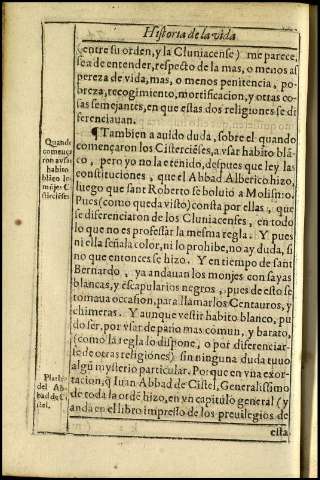 Historia de la vida
(entre su orden, y la Cluniacense) me parece,
sea de entender, respecto de la mas, o menos as
pereza de vida, mas, o menos penitencia, po
breza, recogimiento, mortificacion, y otras co
sas semejantes, en que estas dos religiones se di
ferenciauan.
¶ Tambien a auido duda, sobre el quando
començaron los Cisterciẽses, a vsar habito blã
co, pero yo no la e tenido, despues que ley las
constituciones, que el Abbad Alberico hizo,
luego que sant Roberto se boluio a Molismo.
Pues (como queda visto) consta por ellas, que
se diferenciaron de los Cluniacenses, en todo
lo que no es professar la mesma regla. Y pues
ni ella señala color, ni lo prohibe, no ay duda, si
no que entonces se hizo. Y en tiempo de sant
Bernardo, ya andauan los monjes con sayas
blancas, y escapularios negros, pues de esto se
tomaua occasion, para llamarlos Centauros, y
chimeras. Y aunque vestir habito blanco, pu
do ser, por vsar de pario mas comun, y barato,
(como la regla lo dispone, o por diferenciar-
se de otras religiones) sin ninguna duda tuuo
algũ mysterio particular. Porque en vna exor-
tacion, q̃ Iuan Abbad de Cistel, Generalissimo
de toda la ordẽ hizo, en vn capitulo general (y
anda en el libro impresso de los preuilegios de
esta
Quando
comença
ron a vsar
habito
blãco los
mõjes Ci
sterciẽses
del Ab-
bad de Ci
stel.